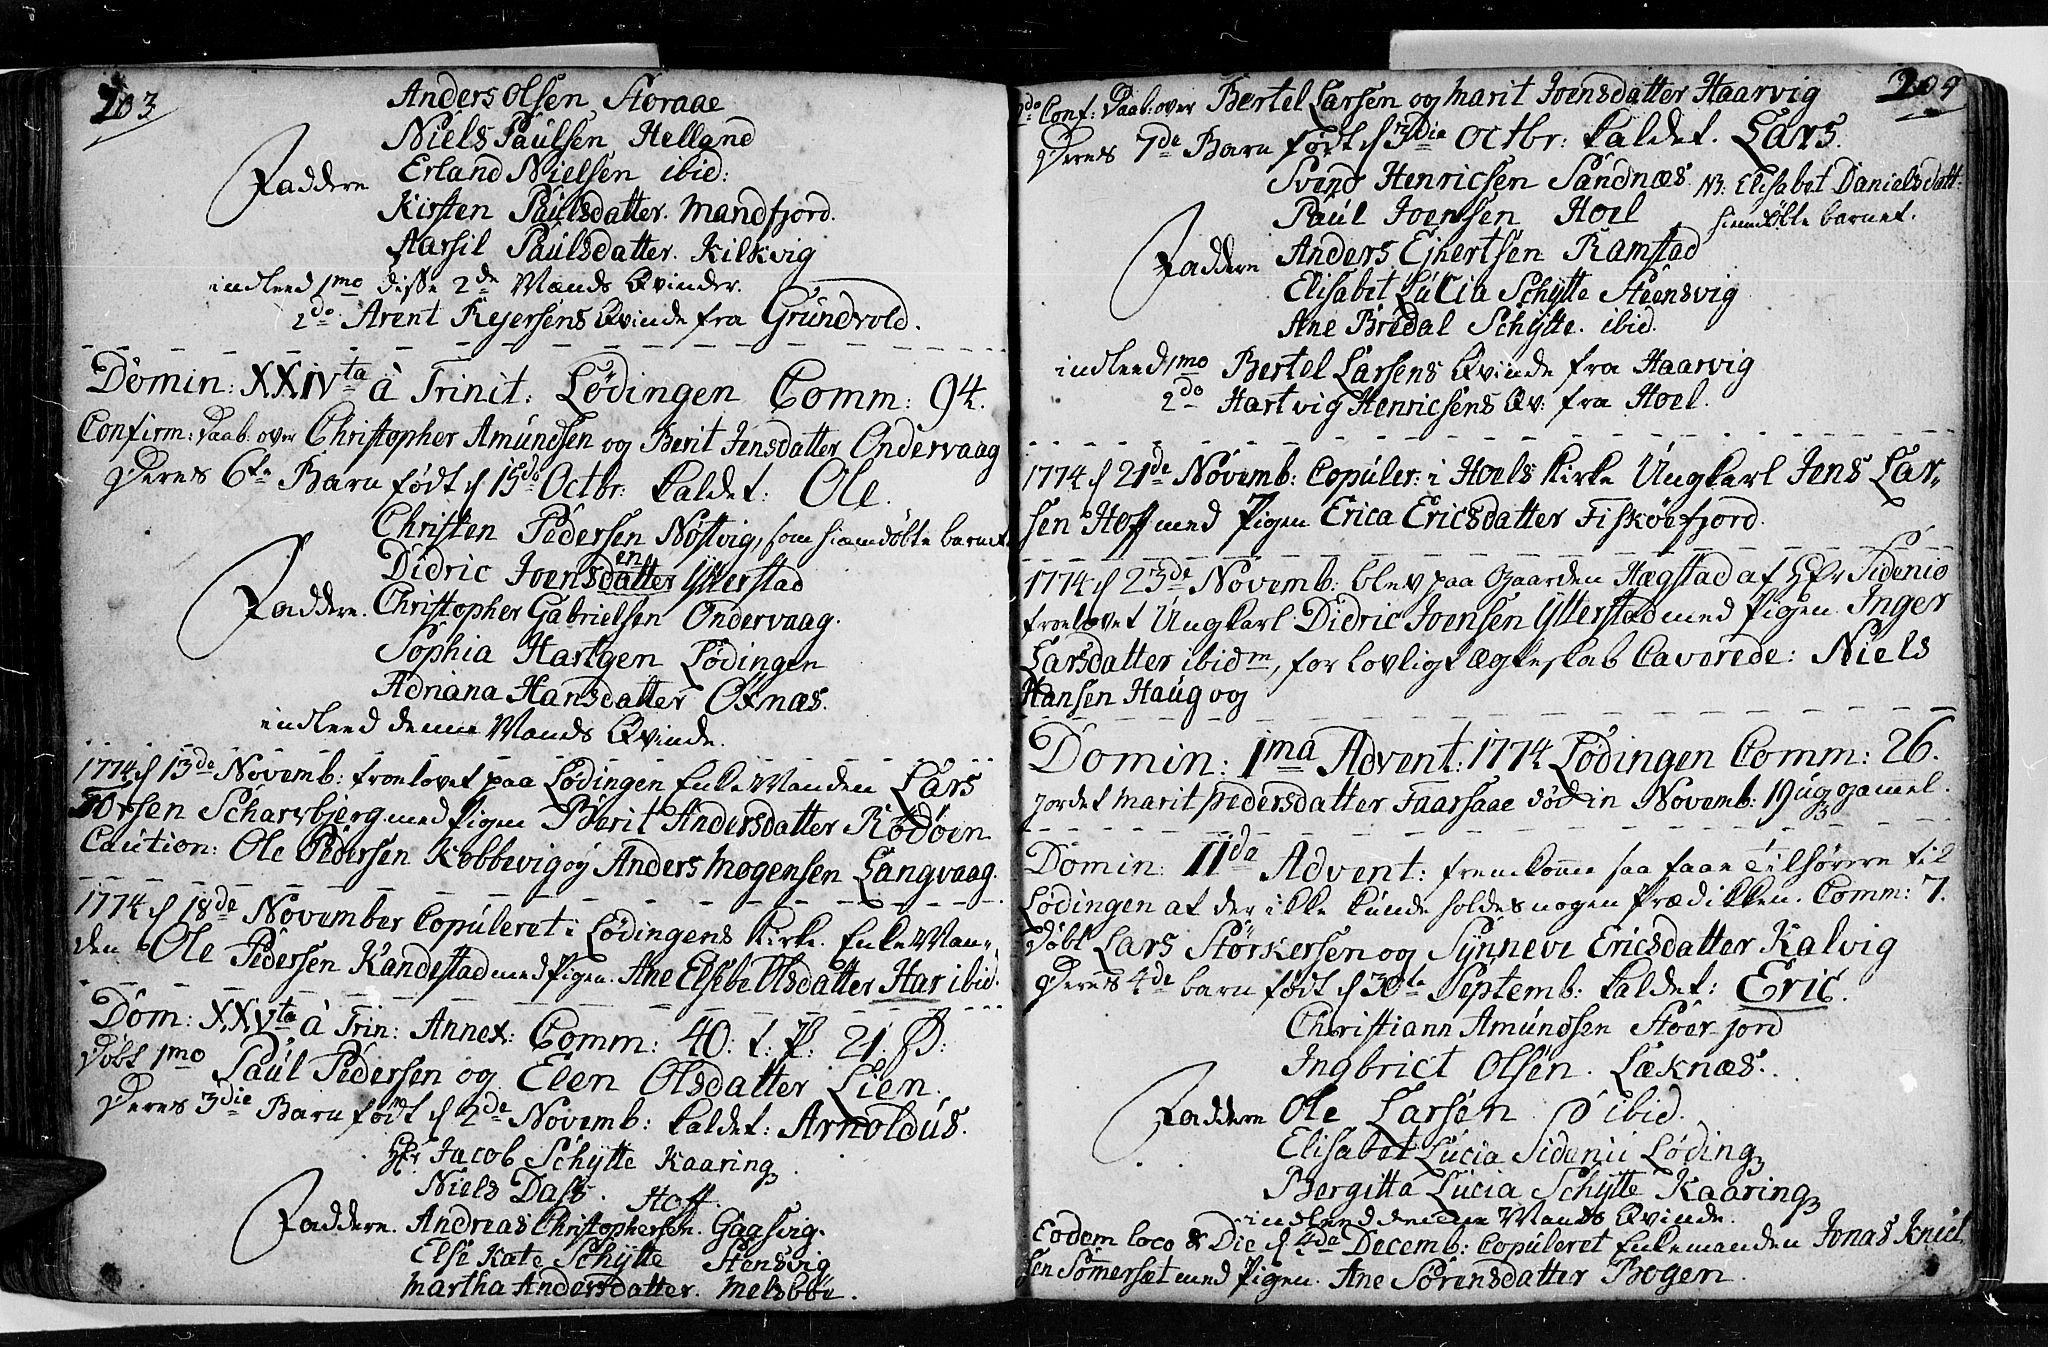 203
Anders Olsen Storaae
Niels Paulsen Helland
Faddere Erland Nielsen ibid:
Kirsten Paulsdatter. Mandfjord.
Marsil Paulsdatter. Kilkvig
indleed 1mo disse 2de Mands Qvinder.
2do Arent Rejersens Qvinde fra Grundvold.
Domin: XXIVta à Trinit: Lødingen Comm: 94.
Confirm: daab: over Christopher Amundsen og Berit Jensdatter Ondervaag
Deres 6te Barn født d 15de Octbr: kaldet: Ole.
Christen Pedersen Nøstvig, som hiemdøbte barnet
Didric Joensdatter en Ytterstad
Faddere. Christopher Gabrielsen Ondervaag.
Sophia Hartgen Lødingen
Adriana Hansdatter Oxnæs.
indleed denne Mands Qvinde.
1774 d 13de Novemb: troelovet paa Lødingen EnkeManden Lars
Torsen Scharvbjerg med Pigen Berit Andersdatter Rødøen
Caution: Ole Pedersen Kobbevig og Anders Mogensen Langvaag.
1774 d 18de November Copuleret i Lødingens Kirke. EnkeMan-
den Ole Pedersen Kandestad med Pigen. Ane Elsebe Olsdatter Har ibid.
Dom: XXVta à Trin: Annex: Comm: 40. t. P: 21 S:
Døbt 1mo Paul Pedersen og Elen Olsdatter Lien.
Deres 3die Barn født d 2de Novemb: kaldet: Arnoldus.
Hr Jacob Schytte Kaaring
Niels Dass. Hoff
Faddere. Andreas Christophersen. Gaasvig.
Else Kate Schytte Stensvig
Martha Andersdatter. Melsbøe.
204
2do Conf: daab: over Bertel Larsen og Marit Joensdatter Haarvig
Deres 7de Barn født d 3die Octbr: kaldet. Lars.
Svend Henricsen Sandnæs NB. Elisabet Danielsdatt:
Paul Joensen Hoel hiemdøbte barnet.
Faddere Anders Ejhertsen Ramstad
Elisabet Lucia Schytte Steensvig
Ane Bredal Schytte. ibid.
indleed 1mo Bertel Larsens Qvinde fra Haarvig
2do Hartvig Henricsens Qv: fra Hoel.
1774 d 21de Novemb: Copuler: i Hoels Kirke Ungkarl Jens Lar-
sen Hoff med Pigen Erica Ericsdatter Fiskøefjord.
1774 d 23de Novemb: blev paa Gaarden Hægstad af Hr Sidenio
troelovet Ungkarl. Didric Joensen Ytterstad med Pigen. Inger
Larsdatter ibidm, for lovligt Ægteskab Caverede: Niels
Hansen Haug og
Domin: 1ma Advent: 1774 Lødingen Comm: 26.
jordet Marit Pedersdatter Faarsaae død in Novemb: 19 ug: gammel.
Domin: IIda Advent: fremkomme saa faae Tilhørere til
Lødingen at der ikke kunde holdes nogen Prædikken. Comm: 7.
Døbt Lars Størkersen og Synnevi Ericsdatter Kalvig
Deres 4de barn født d 30te Septemb: kaldet: Eric.
Christiann Amundsen Stoerfjord
Ingbrict Olsen. Læknæs.
Faddere Ole Larsen ibid.
Elisabet Lucia Sidenii Løding
Bergitta Lucia Schytte Kaaring
indleed denne Mands Qvinde.
Eodem loco & Die d 4de Decemb: Copuleret Enkemanden Jonas Knud
sen Sømerset med Pigen. Ane Sørensdatter Bogen.